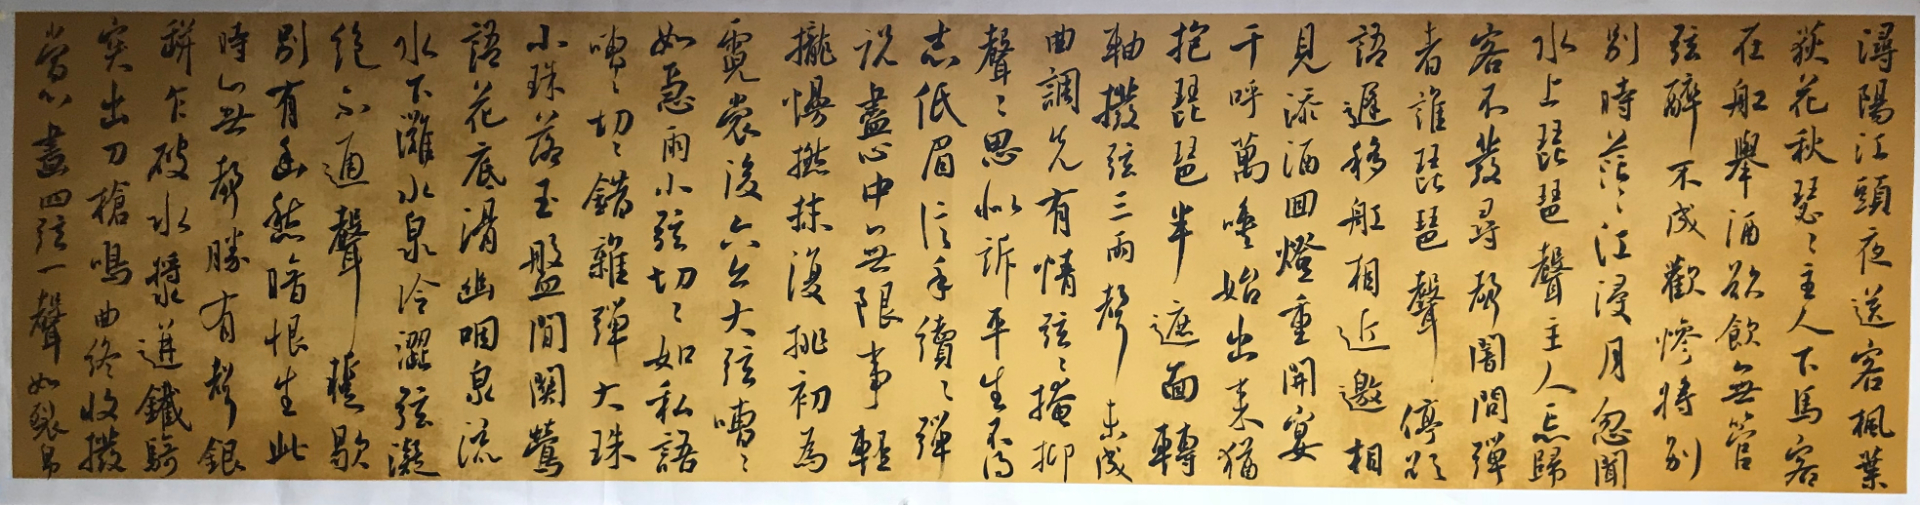 潯陽江頭夜送客楓葉
荻花秋瑟〻主人下馬客
在船舉酒欲飲無管
弦醉不成歡慘將別
別時茫〻江浸月忽聞
水上琵琶聲主人忘歸
客不發尋聲闇問彈
者誰琵琶聲停欲
語遲移船相近邀相
見添酒回燈重開宴
千呼萬喚始出來猶
抱琵琶半遮面轉
軸撥弦三兩聲未成
曲調先有情弦〻掩抑
聲〻思似訴平生不得
志低眉信手續〻彈
說盡心中無限事輕
攏慢撚抹復挑初為
霓裳後六幺大弦嘈〻
如急雨小弦切〻如私語
嘈〻切〻錯雜彈大珠
小珠落玉盤間関鶯
語花底滑幽咽泉流
水下灘水泉冷澀弦凝
絕不通聲暫歇
別有幽愁暗恨生此
時無聲勝有聲銀
缾乍破水漿迸鐵騎
突出刀槍鳴曲終收撥
當心畫四弦一聲如裂帛